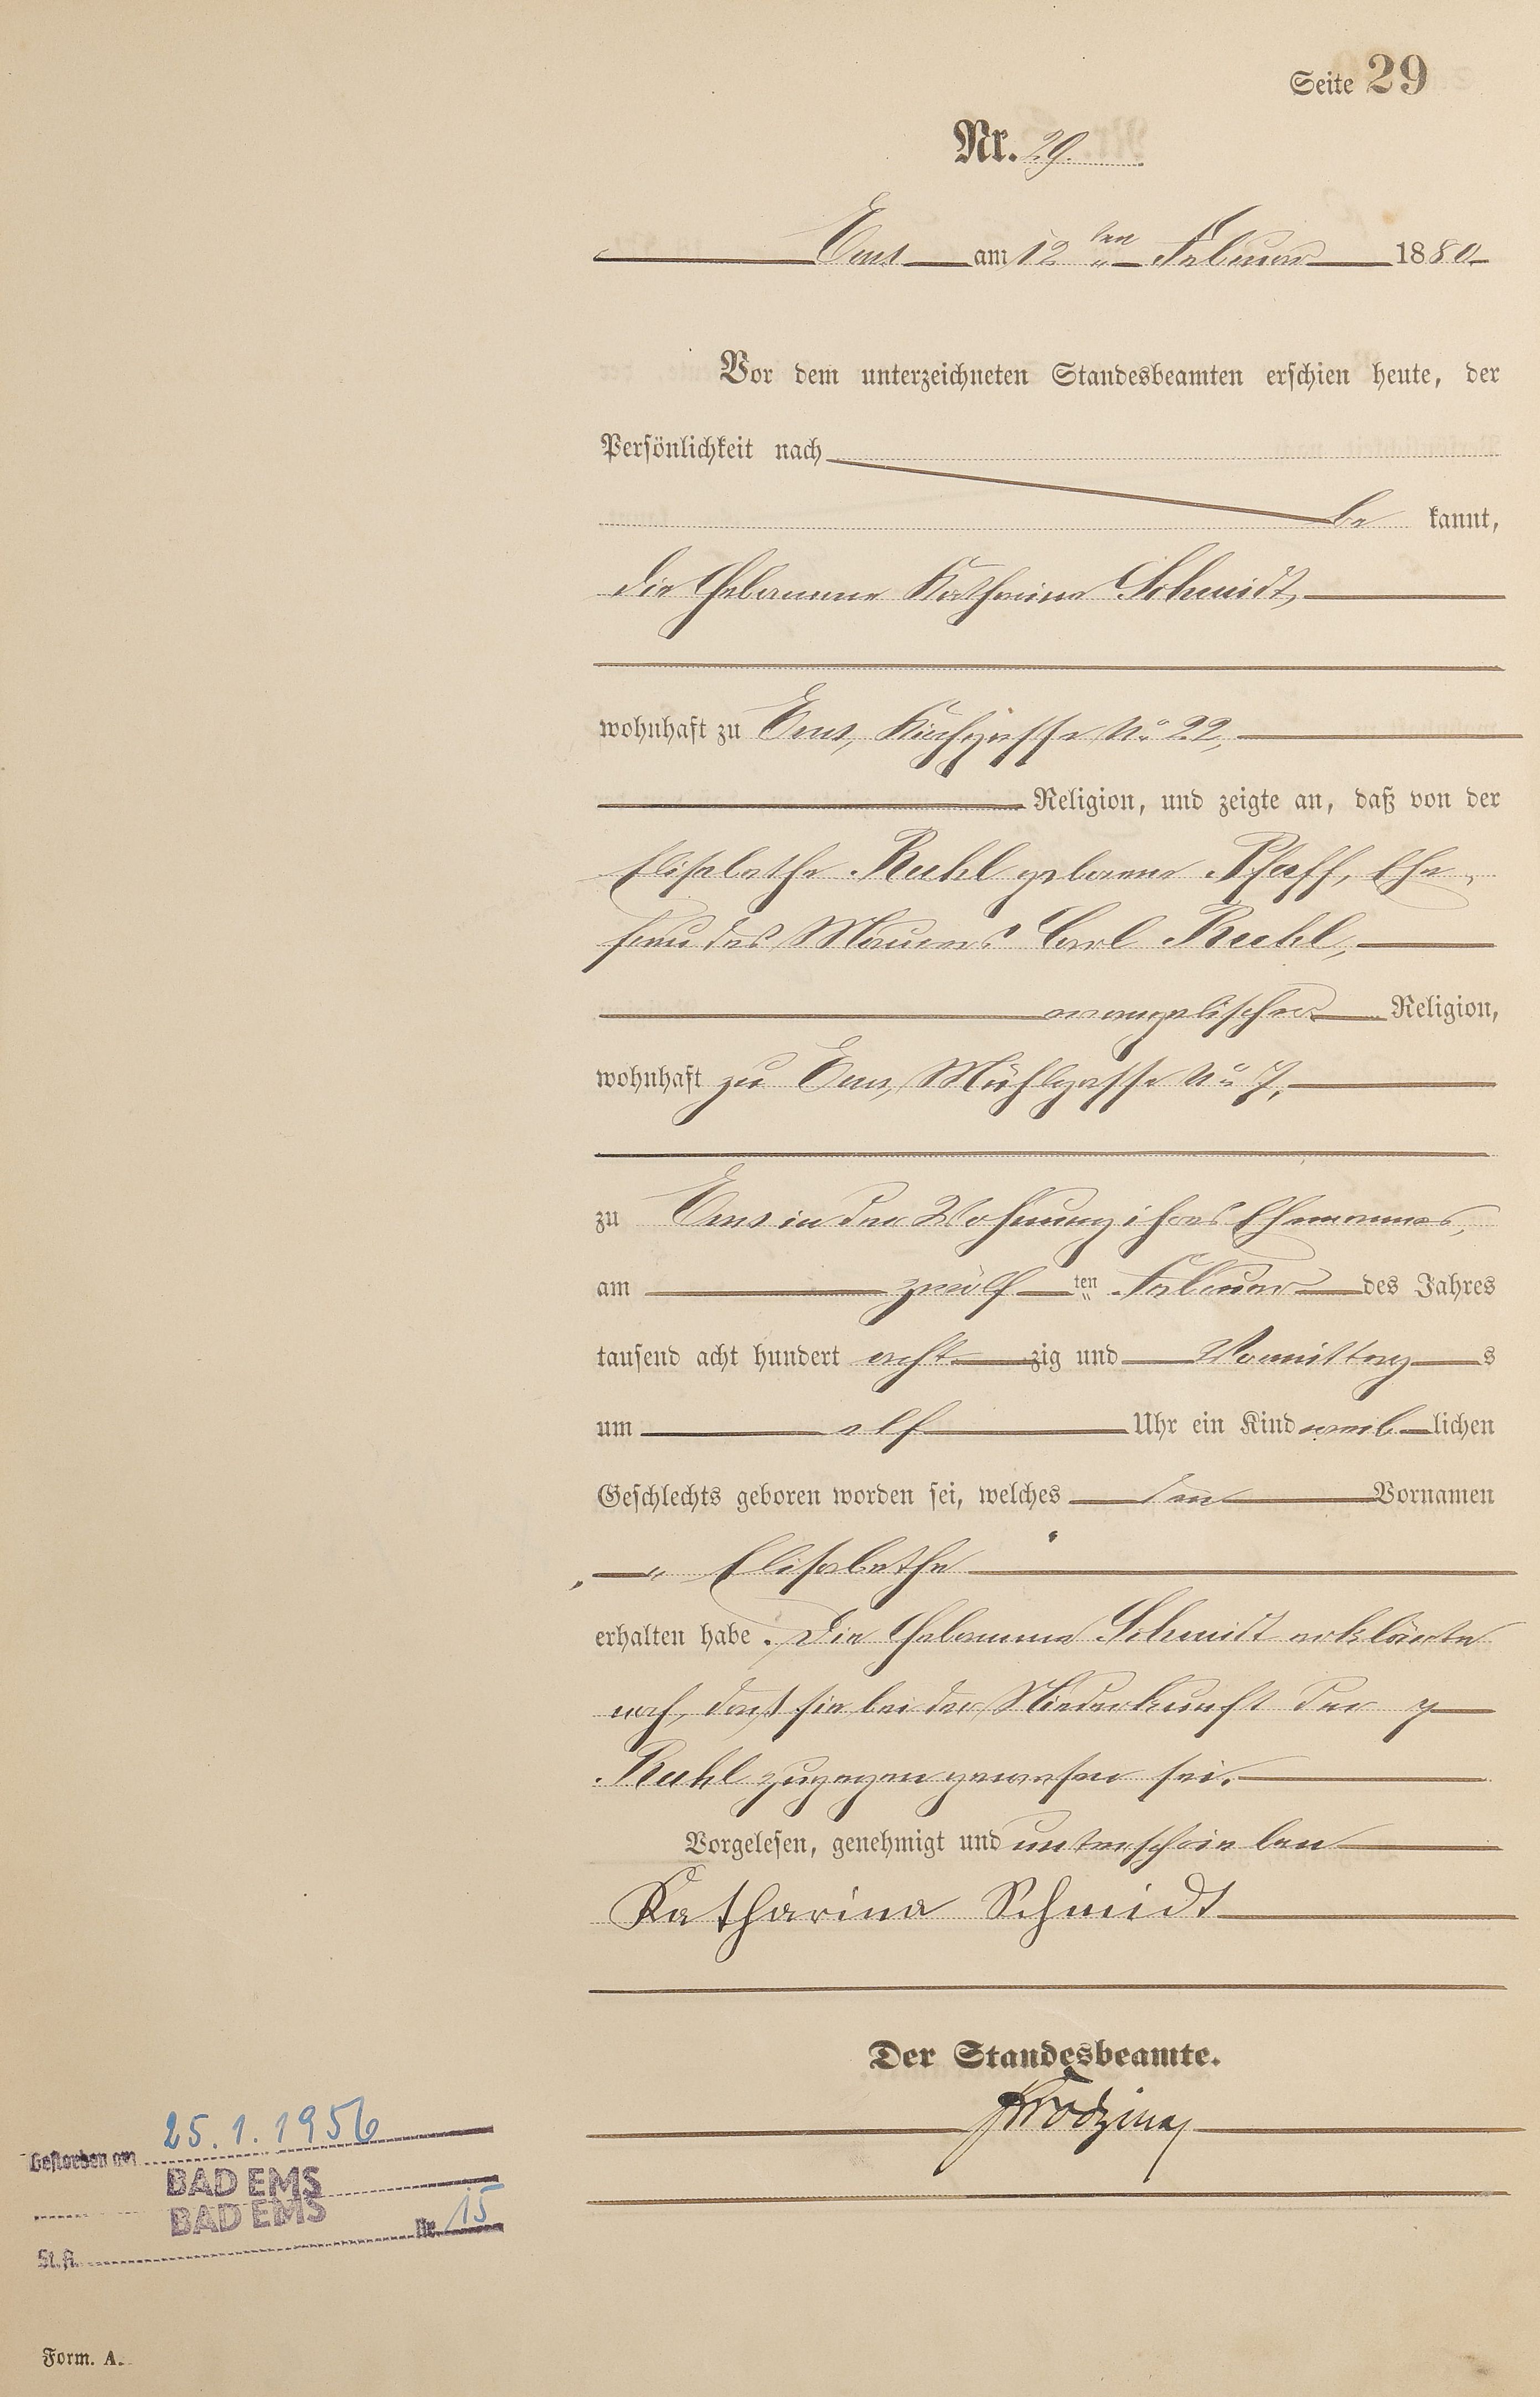 Seite 29
Nr. 29.
Ems am 12ten Februar 1880
Vor dem unterzeichneten Standesbeamten erschien heute, der
Persönlichkeit nach
be kannt,
die Hebamme Katharina Schmidt,
wohnhaft zu Ems, Kirchgasse No 22,
Religion, und zeigte an, daß von der
Elisabethe Ruhl geborene Pfaff, Ehe-
frau des Maurers Carl Ruhl,
evangelischer Religion,
wohnhaft zu Ems, Mühlgasse No 7,
zu Ems in der Wohnung ihres Ehemannes,
am zwölf ten Februar des Jahres
tausend acht hundert acht zig und Vormittag s
um elf Uhr ein Kind weib lichen
Geschlechts geboren worden sei, welches den Vornamen
Elisabethe
erhalten habe. Die Hebamme Schmidt erklärte
noch, daß sie bei der Niederkunft der p
Ruhl zugegen gewesen sei.
Vorgelesen, genehmigt und unterschrieben
Katharina Schmidt
Der Standesbeamte.
Gestorben am 25.1.1956
BAD EMS
BAD EMS
St. A. Nr. 15
Form. A.